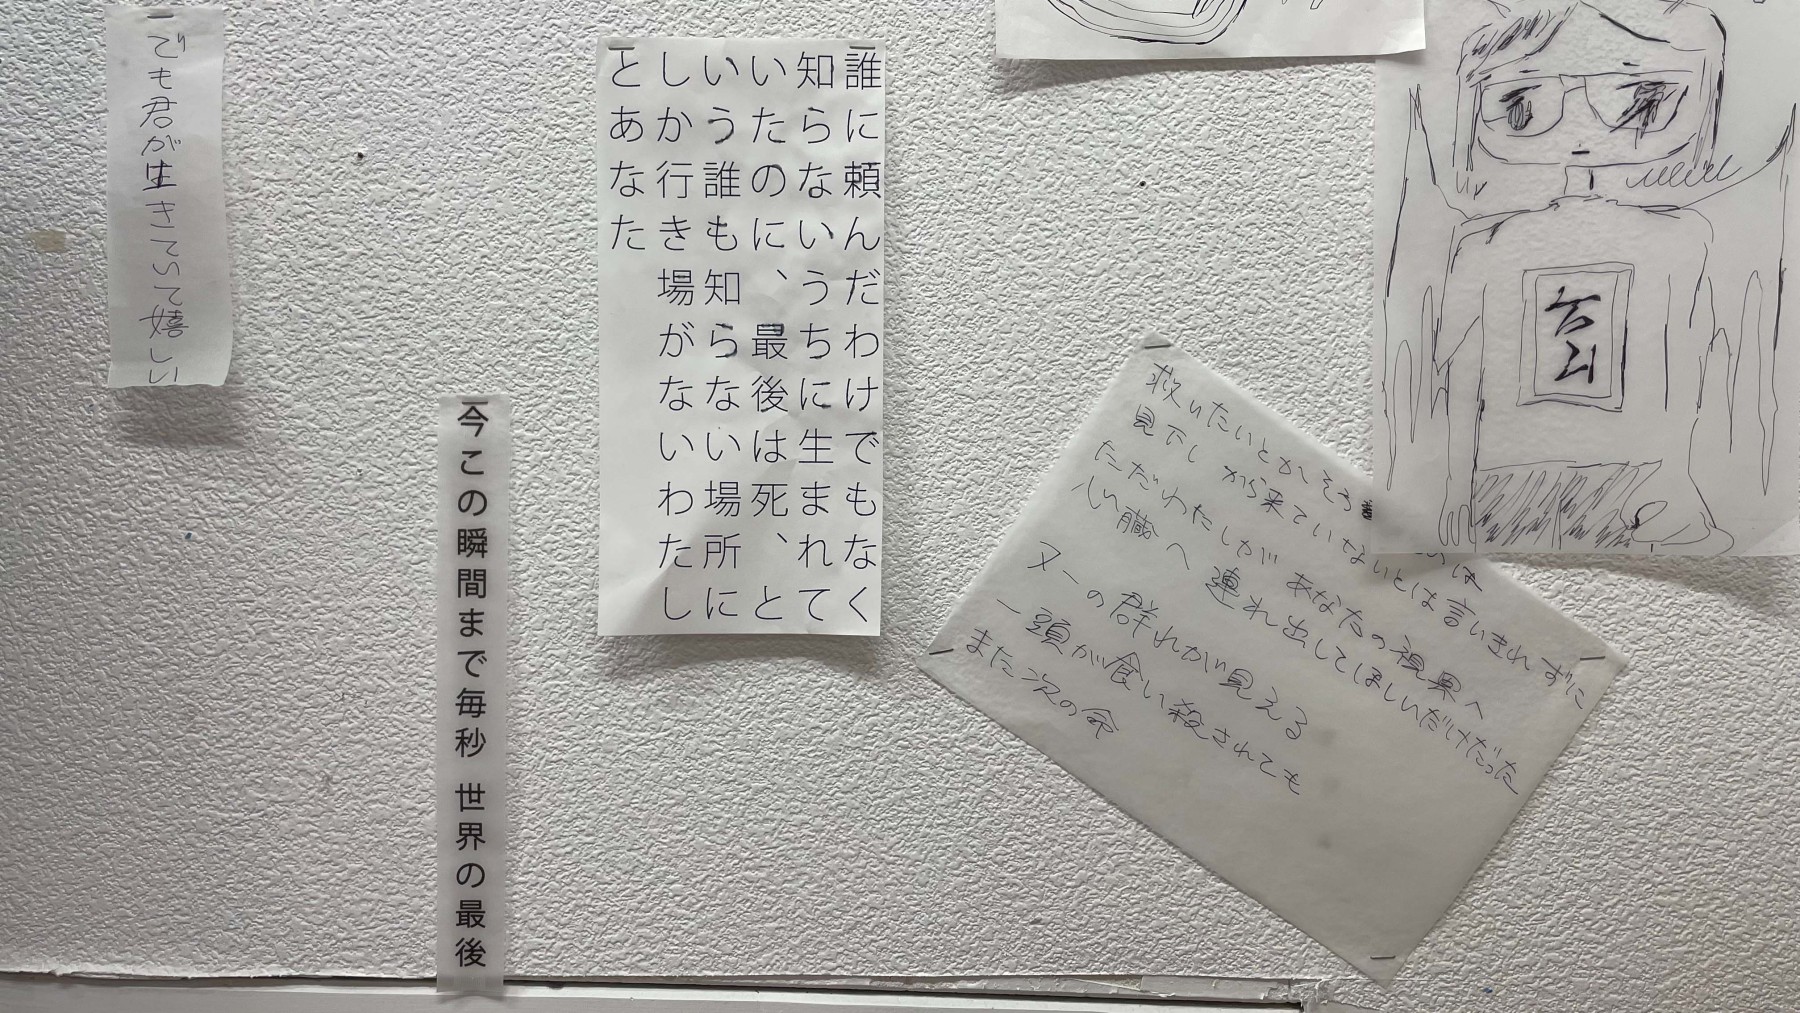 でも君が生きていて嬉しい
今この瞬間まで毎秒 世界の最後
誰に頼んだわけでもなく
知らないうちに生まれて
いたのに、最後は死、と
いう誰も知らない場所に
しか行き場がないわたし
とあなた
救いたいとかそう
見下しから来ていないとは言いきれずに
ただわたしがあなたの視界へ
心臓へ連れ出してほしいだけだった
ヌーの群れが見える
一頭が食い殺されても
また次の命